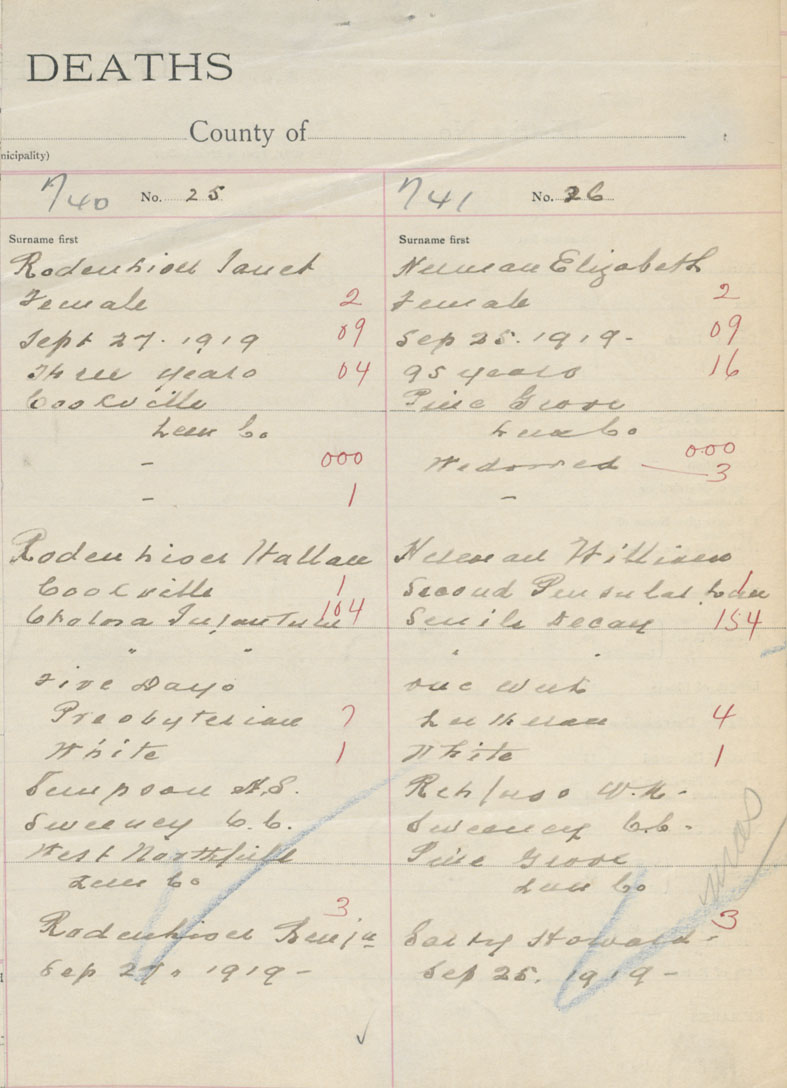 DEATHS
County of
nicipality)
1740 No. 25
Surname first
Rodenhiser Janet
Female 2
Sept 27. 1919 09
Three years 04
Cookville
Lun Co
- 000
- 1
Rodenhiser Wallace
Cookville 1
Cholora Infantum 104
" "
Five Days
Presbyterian 7
White 1
Simpson A.S.
Sweeney C.C.
West Northfield
Lun Co
3
Rodenhiser Benja
Sep 27. 1919-
1741 No. 26
Surname first
Herman Elizabeth
Female 2
Sep 25. 1919- 09
95 years 16
Pine Grove
Lun Co
Widowed 000
3
-
Herman William
Second Peninsular Lun 1
Senile Decay 154
" "
one week
Lutheran 4
White 1
Rehfuss W.N.
Sweeney C.C.
Pine Grove
Lun Co
3
Howard
Sep 25. 1919-